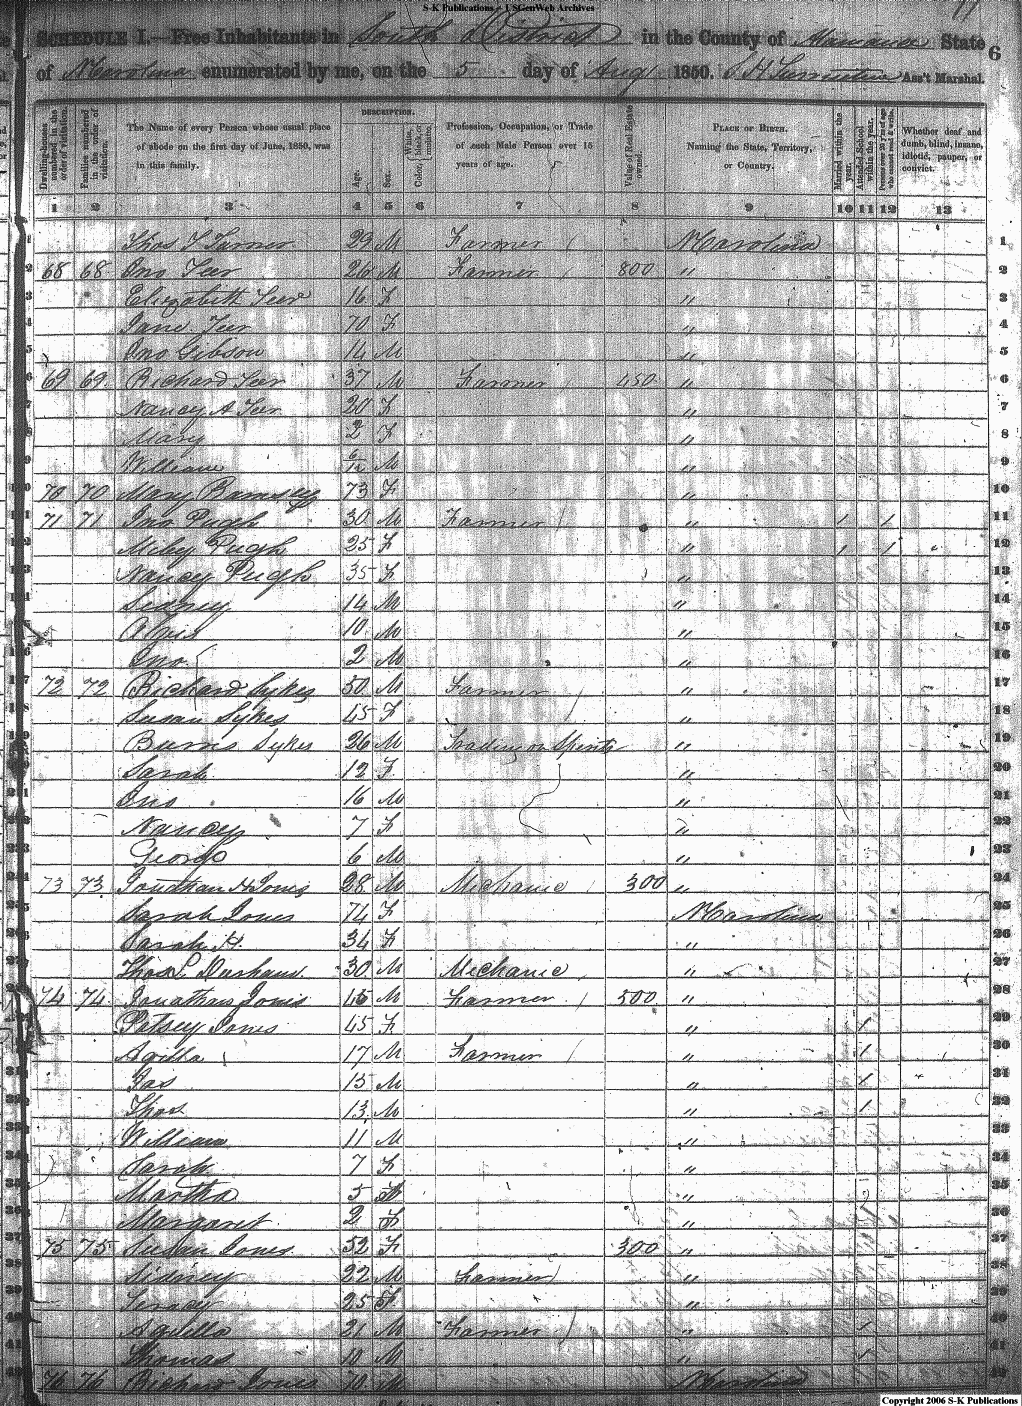 S-K Publications - USGenWeb Archives
11
SCHEDULE I.—Free Inhabitants in South District in the County of Alamance State
6
of N Carolina enumerated by me, on the 5 day of Aug 1850. Ass't Marshal.
Dwelling-houses numbered in the order of visitation.
Families numbered in the order of visitation.
The Name of every Person whose usual place of abode on the first day of June, 1850, was in this family.
DESCRIPTION.
Age.
Sex.
White, black, or mulatto.
Color
Profession, Occupation, or Trade of each Male Person over 15 years of age.
Value of Real Estate owned.
PLACE OF BIRTH. Naming the State, Territory, or Country.
Married within the year.
Attended School within the year.
Persons over 20 y'rs of age who cannot read & write.
Whether deaf and dumb, blind, insane, idiotic, pauper, or convict.
1 2 3 4 5 6 7 8 9 10 11 12 13
1 Thos F Turner 29 M Farmer N Carolina 1
2 68 68 Jno Teer 26 M Farmer 800 " 2
3 Elizabeth Teer 16 F " 3
4 Jane Teer 70 F " 4
5 Jno Gibson 14 M " 5
6 69 69 Richard Teer 37 M Farmer 450 " 6
7 Nancy A Teer 20 F " 7
8 Mary 2 F " 8
9 William 6/12 M " 9
10 70 70 Mary 73 F " 10
11 71 71 Jno Pugh 30 M Farmer " / / 11
12 Miley Pugh 25 F " / / 12
13 Nancy Pugh 35 F " 13
14 Sidney 14 M " 14
15 10 M " 15
16 Jno 2 M " 16
17 72 72 Richard Sykes 50 M Farmer " 17
18 Susan Sykes 45 F " 18
19 Burns Sykes 26 M Trading on Spirits " 19
20 Sarah 12 F " 20
21 Jno 16 M " 21
22 Nancy 7 F " 22
23 George 6 M " 23
24 73 73 Jonathan H Jones 28 M Mechanic 300 " 24
25 Sarah Jones 74 F N Carolina 25
26 Sarah H. 34 F " 26
27 Thos L Durham 30 M Mechanic " 27
28 74 74 Jonathan Jones 45 M Farmer 500 " 28
29 Patsey Jones 45 F " / 29
30 Aquilla 17 M Farmer " / 30
31 Jas 15 M " / 31
32 Thos 13 M " / 32
33 William 11 M " 33
34 Sarah 7 F " 34
35 Martha 5 F " 35
36 Margaret 2 F " 36
37 75 75 Susan Jones 52 F 300 " 37
38 Sidney 22 M Farmer " 38
39 25 F " 39
40 Aquilla 21 M Farmer " / 40
41 Thomas 10 M " / 41
42 76 76 Richard Jones 70 M N Carolina 42
Copyright 2006 S-K Publications